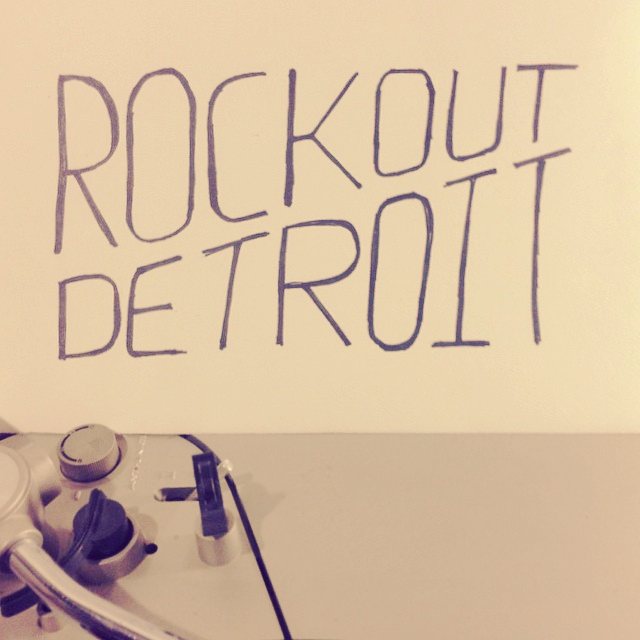 ROCKOUT
DETROIT